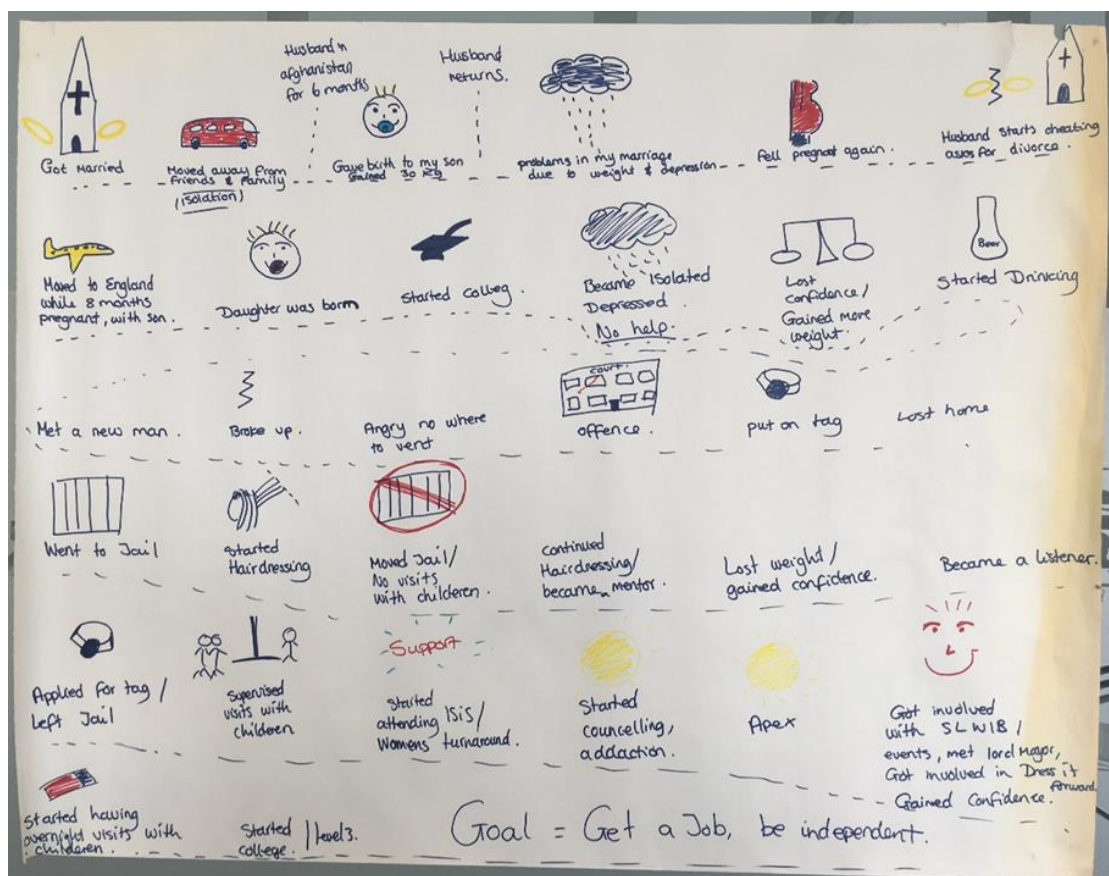 Got Married
Moved away from
friends & family
(isolation)
Husband in
afghanistan
for 6 months
Gave birth to my son
gained 30 kg
Husband
returns.
problems in my marriage
due to weight & depression
fell pregnant again.
Husband starts cheating
asks for divorce.
Moved to England
while 8 months
pregnant, with son.
Daughter was born
Started Colleg.
Became Isolated
Depressed.
No help.
Lost
confidence/
Gained more
weight.
Beer
Started Drinking
Met a new man.
Broke up.
Angry no where
to vent
court.
offence.
put on tag
Lost home
Went to Jail
Started
Hairdressing
Moved Jail/
No visits
with childeren.
Continued
Hairdressing/
became mentor.
Lost weight/
gained confidence.
Became a Listener.
Applied for tag/
Left Jail
Supervised
visits with
children
Support
Started
attending ISIS/
Womens turnaround.
Started
councelling,
addaction.
Apex
Got involved
with SLWIB/
events, met lord Mayor,
Got involved in Dress it
forward.
Gained Confidence.
Started having
overnight visits with
childeren.
Started
college.
level 3.
Goal = Get a Job, be independent.